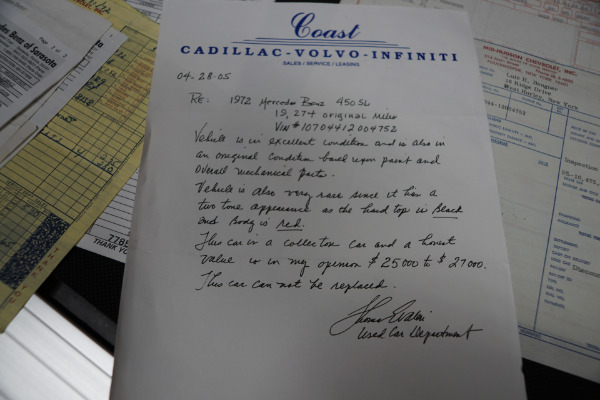 Coast
CADILLAC-VOLVO-INFINITI
SALES / SERVICE / LEASING
04-28-05
Re: 1972 Mercedes Benz 450SL
19,274 original Miles
VIN# 10704412004752
Vehicle is in excellent condition and is also in
an original condition based upon paint and
overall mechanical parts.
Vehicle is also very rare since it has a
two tone appearance as the hard top is Black
and Body is Red.
This car is a collectors car and a honest
value is in my opinion $25000 to $27000.
This car can not be replaced.
Used Car Department
Benz of Sarasota
Page 2 of 2
THANK YOU
MID-HUDSON CHEVROLET, INC.
West Hurley, New York
Inspection